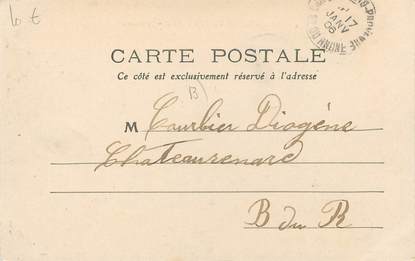 lot
CARTE POSTALE
Ce côté est exclusivement réservé à l'adresse
B
M Courbier Diogène
Chateaurenard
B du R
17
JANV
06